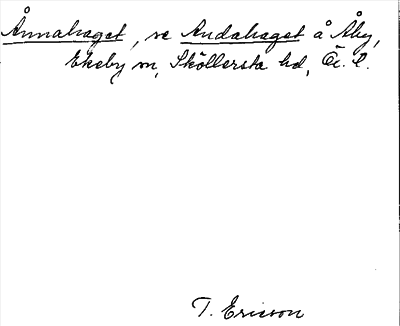 Ånnahaget, se Andahaget å Åby,
Ekeby sn, Sköllersta hd, Ö. l.
T. Ericson